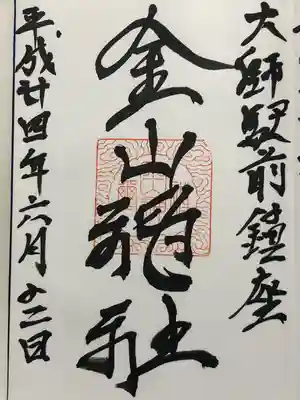 大師駅前鎮座
金山神社
平成廿四年六月廿二日